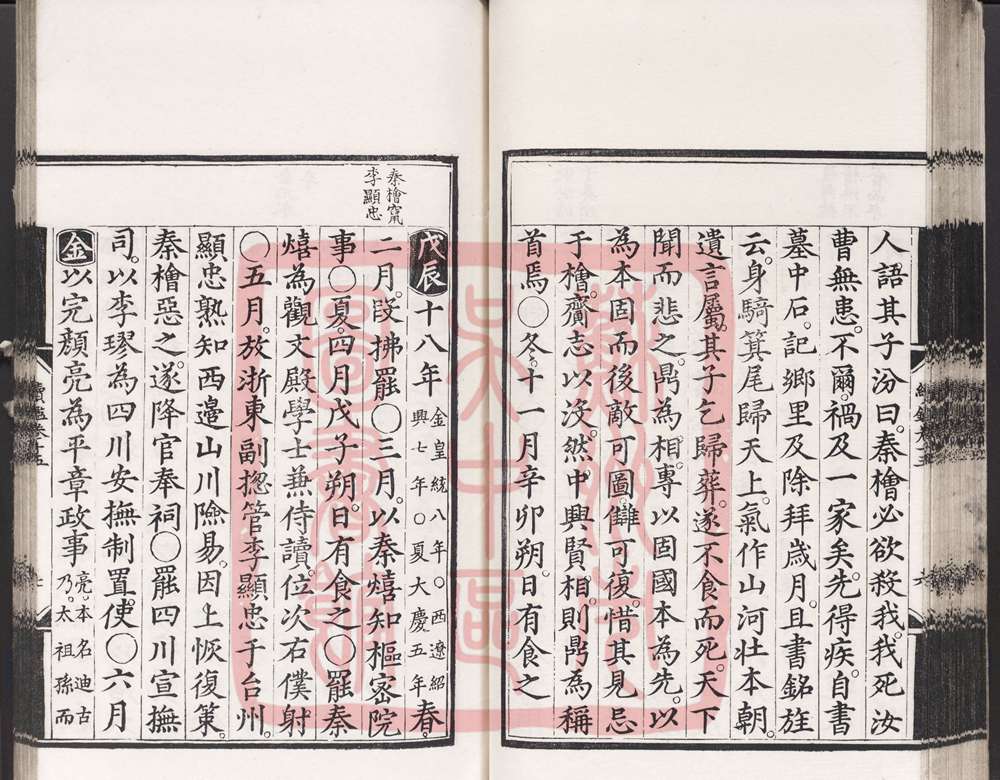 人語其子汾曰秦檜必欲殺我我死汝
曹無患不爾禍及一家矣先得疾自書
墓中石記鄉里及除拜歲月且書銘旌
云身騎箕尾歸天上氣作山河壯本朝
遺言屬其子乞歸葬遂不食而死天下
聞而悲之鼎為相專以固國本為先以
為本固而後敵可圖讎可復惜其見忌
于檜齎志以沒然中興賢相則鼎為稱
首焉〇冬十一月辛卯朔日有食之
秦檜竄
李顯忠
戊辰十八年金皇統八年〇西遼紹
興七年〇夏大慶五年春
二月段拂罷〇三月以秦熺知樞密院
事〇夏四月戊子朔日有食之〇罷秦
熺為觀文殿學士兼侍讀位次右僕射
〇五月放浙東副揔管李顯忠于台州
顯忠熟知西邊山川險易因上恢復策
秦檜惡之遂降官奉祠〇罷四川宣撫
司以李璆為四川安撫制置使〇六月
金以完顏亮為平章政事亮本名迪古
乃太祖孫而